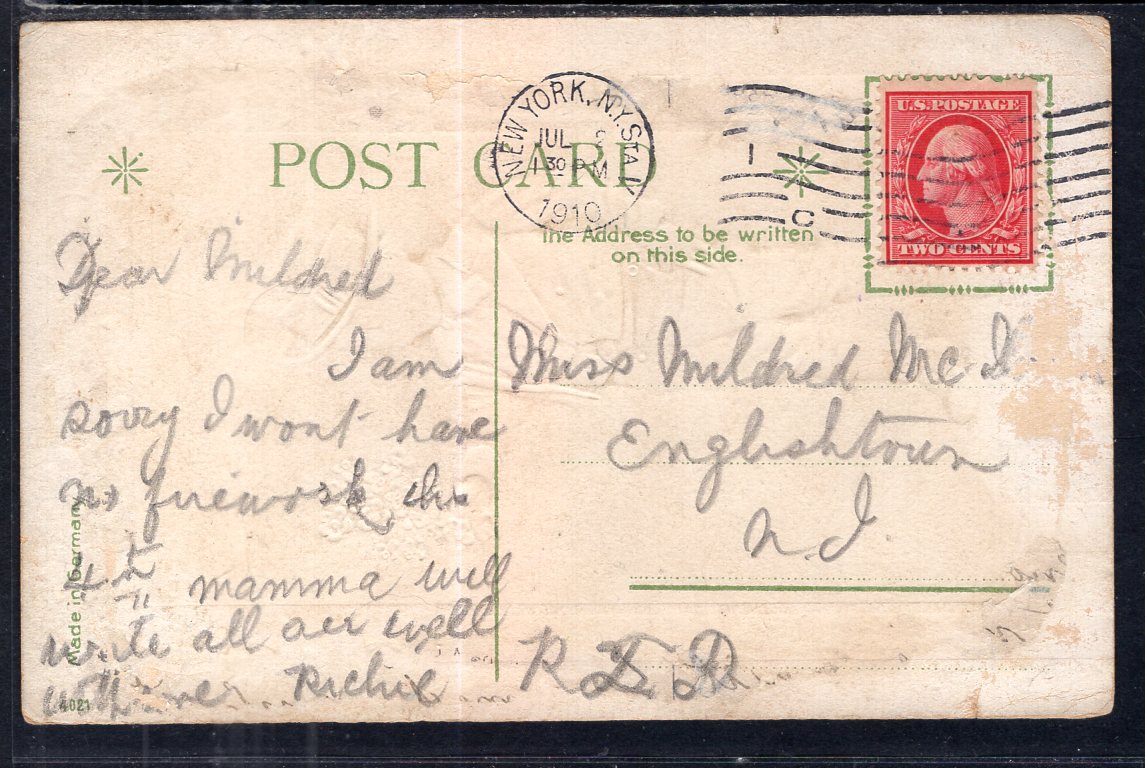 POST CARD
NEW YORK, N.Y. STA. 
JUL
1 30 PM
1910
1
C
U.S. POSTAGE
TWO CENTS
The Address to be written
on this side.
Dear Mildred
I am
sorry I wont have
no firewosk this
4th mamma will
write all are well
Richie
Miss Mildred Mc
Englishtown
N.J.
R F D
Made in Germany
4021